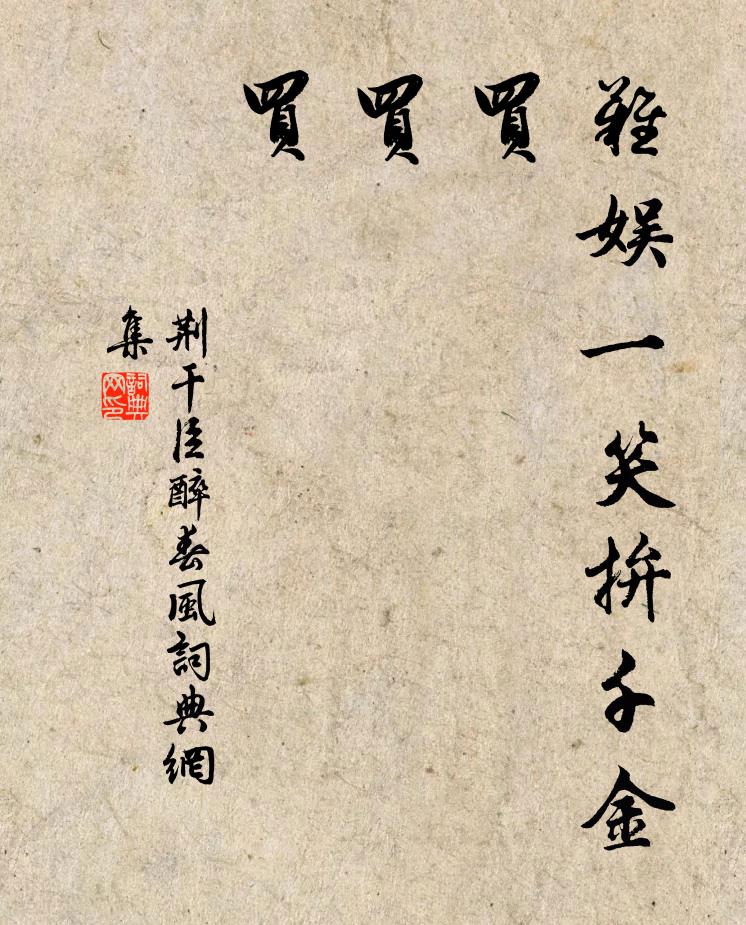 難娛一笑拚千金
買
買
買
荊干臣醉春風詞典網
集
詞典
网印